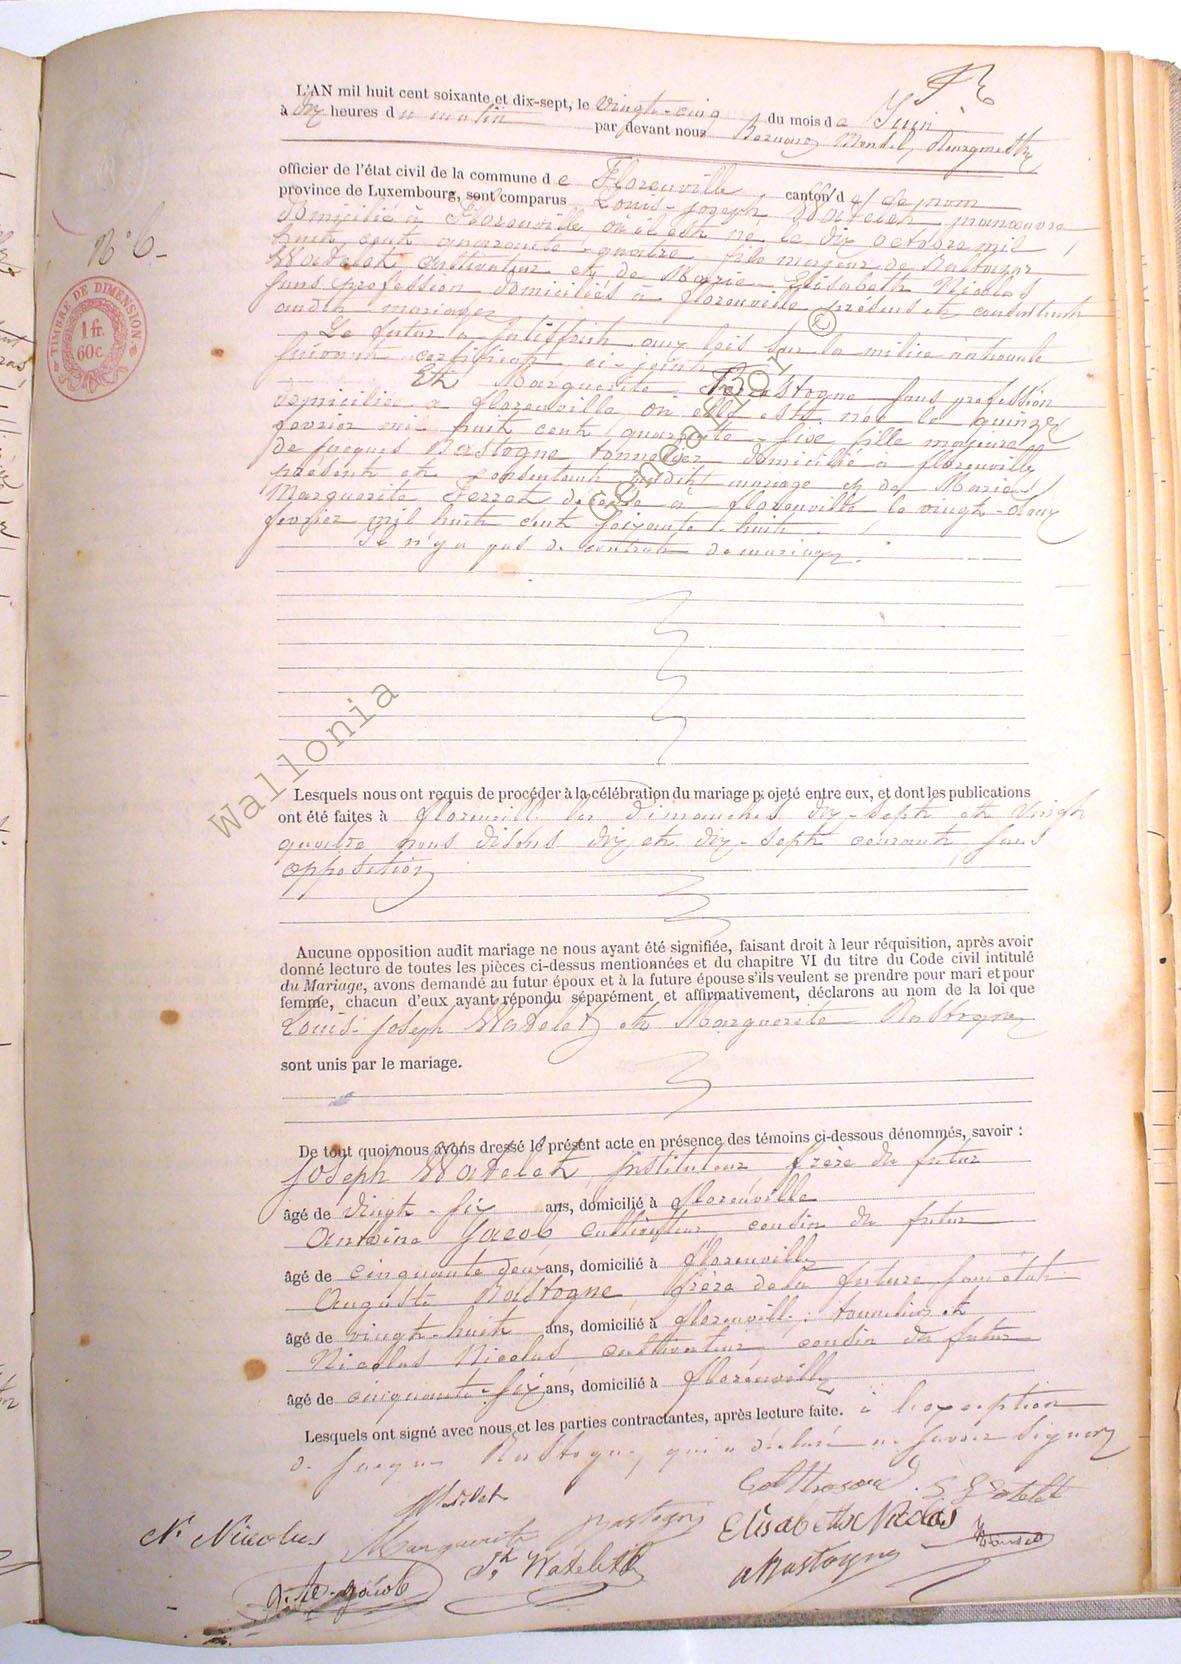 L'AN mil huit cent soixante et dix-sept, le vingt-cinq du mois de Juin
à dix heures du matin par devant nous Bernard Mondel, Bourgmestre
officier de l'état civil de la commune de Florenville canton d de nom
province de Luxembourg, sont comparus Louis-Joseph Watelet, manoeuvre
domicilié à Florenville, où il est né le dix octobre mil
huit cent quarante-quatre, fils majeur de Baltazar
Watelet cultivateur et de Marie Elisabeth Nicolas
sans profession domiciliés à florenville présens et consentant
audit mariage
N° 6.-
TIMBRE DE DIMENSION
1 fr.
60 c.
Le futur a satisfait aux lois sur la milice nationale
suivant certificat ci-joint
Et Marguerite Bastogne sans profession
domiciliée à florenville où elle est née le quinze
fevrier mil huit cent quarante-, fille majeure
de Jacques Bastogne tonnelier domicilié à florenville
présent et consentant audit mariage et de Marie
Marguerite décédée à florenville le vingt-deux
fevrier mil huit cent soixante huit.
Il n'y a pas de contrat de mariage.
Wallonia Genealogy ©
Lesquels nous ont requis de procéder à la célébration du mariage projeté entre eux, et dont les publications
ont été faites à florenville les dimanches dix-sept et vingt
quatre nous disons dix et dix-sept courant, sans
opposition
Aucune opposition audit mariage ne nous ayant été signifiée, faisant droit à leur réquisition, après avoir
donné lecture de toutes les pièces ci-dessus mentionnées et du chapitre VI du titre du Code civil intitulé
du Mariage, avons demandé au futur époux et à la future épouse s'ils veulent se prendre pour mari et pour
femme, chacun d'eux ayant répondu séparément et affirmativement, déclarons au nom de la loi que
Louis-Joseph Watelet et Marguerite Bastogne
sont unis par le mariage.
De tout quoi nous avons dressé le présent acte en présence des témoins ci-dessous dénommés, savoir :
Joseph Watelet, instituteur, frère du futur
âgé de vingt-six ans, domicilié à florenville
Antoine Jacob, cultivateur, cousin du futur
âgé de cinquante deux ans, domicilié à florenville
Auguste Bastogne, frère de la future
âgé de vingt-huit ans, domicilié à florenville, tonnelier et
Nicolas Nicolas, cultivateur, cousin du futur
âgé de cinquante-six ans, domicilié à florenville
Lesquels ont signé avec nous et les parties contractantes, après lecture faite. à l'exception
de Jacques Bastogne, qui a déclaré ne savoir signer
Watelet
N. Nicolas Marguerite Bastogne Elisabeth Nicolas
Jh Watelet a Bastogne
Jacob